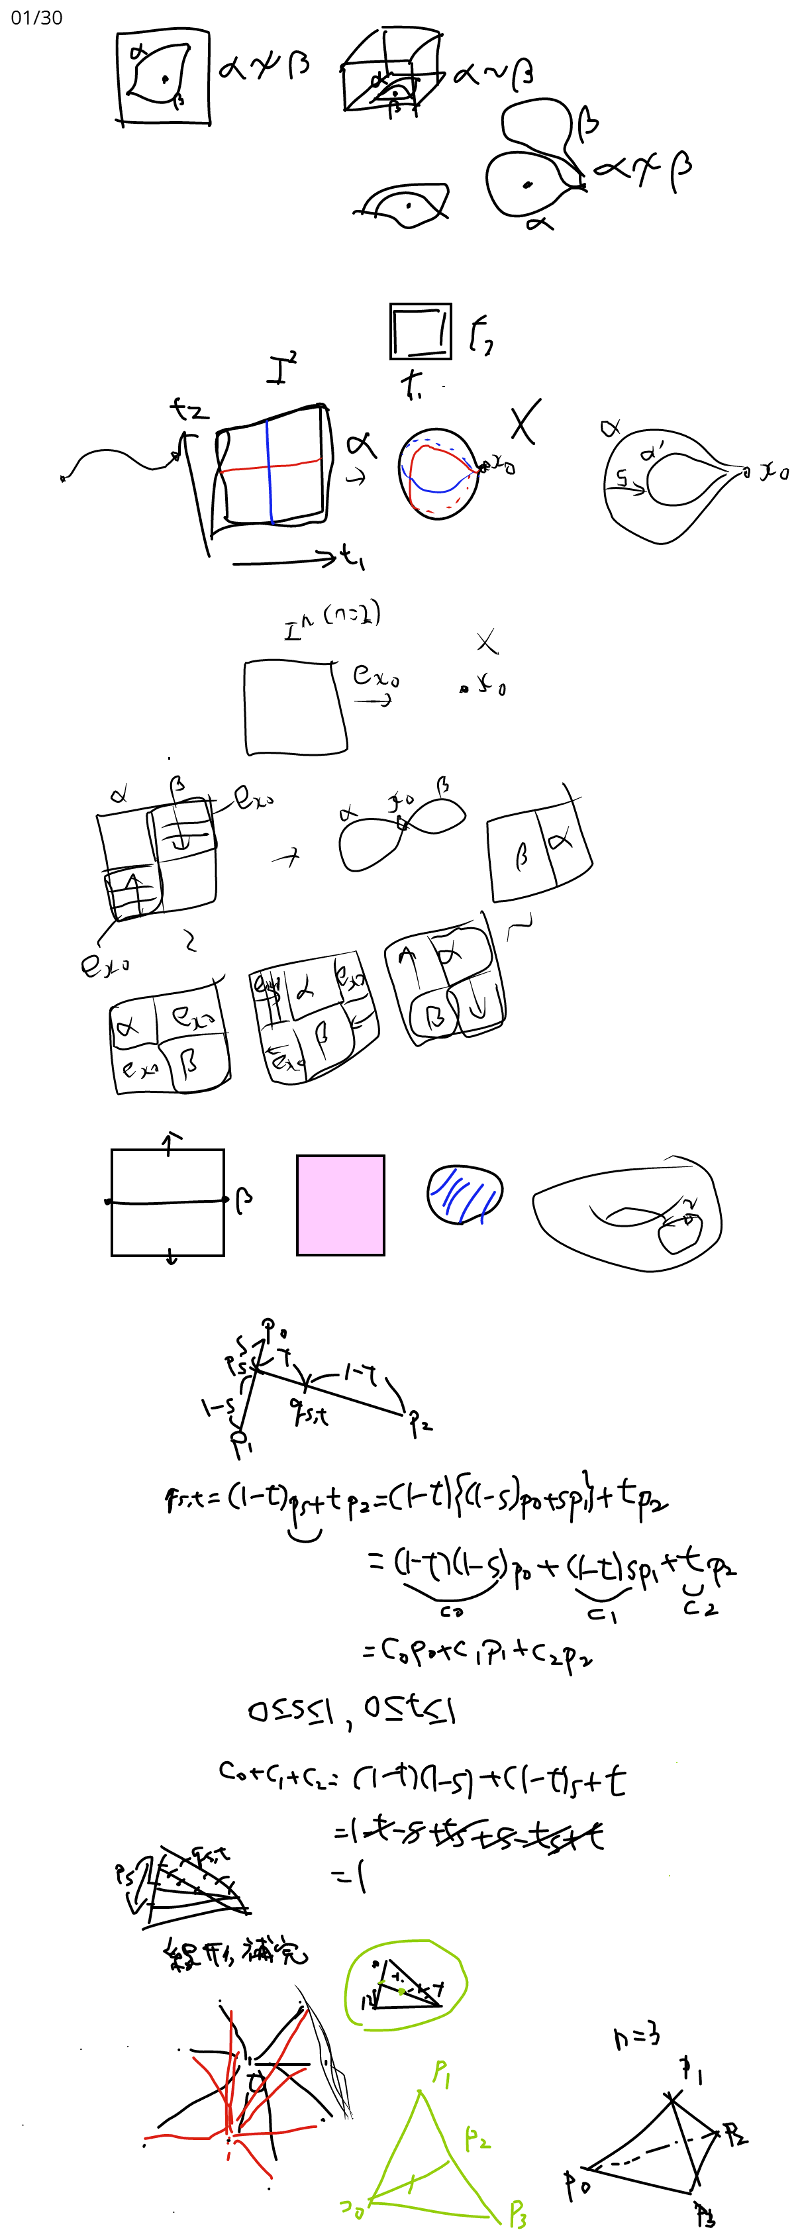 01/30
α
β
α≁β
α
β
α∼β
β
α≁β
α
t₂
t₁
I²
t₂
α
X
x₀
t₁
α
α'
s
x₀
Iⁿ (n=2)
e_{x₀}
X
x₀
α β
e_{x₀}
e_{x₀}
α x₀ β
β α
∼
α e_{x₀}
e_{x₀} β
e_{x₀} α e_{x₀}
e_{x₀} β
α
β
∼
β
p₀
s
p_s
t
1-t
1-s
q_{s,t}
p₁
p₂
q_{s,t}=(1-t)p_s+tp₂=(1-t){(1-s)p₀+sp₁}+tp₂
=(1-t)(1-s)p₀+(1-t)sp₁+tp₂
c₀ c₁ c₂
=c₀p₀+c₁p₁+c₂p₂
0≤s≤1, 0≤t≤1
c₀+c₁+c₂=(1-t)(1-s)+(1-t)s+t
=1-t-s+ts+s-ts+t
=1
p_s
q_{s,t}
線形補完
n=3
p₁
p₂
p₃
p₁
p₂
p₀
p₃